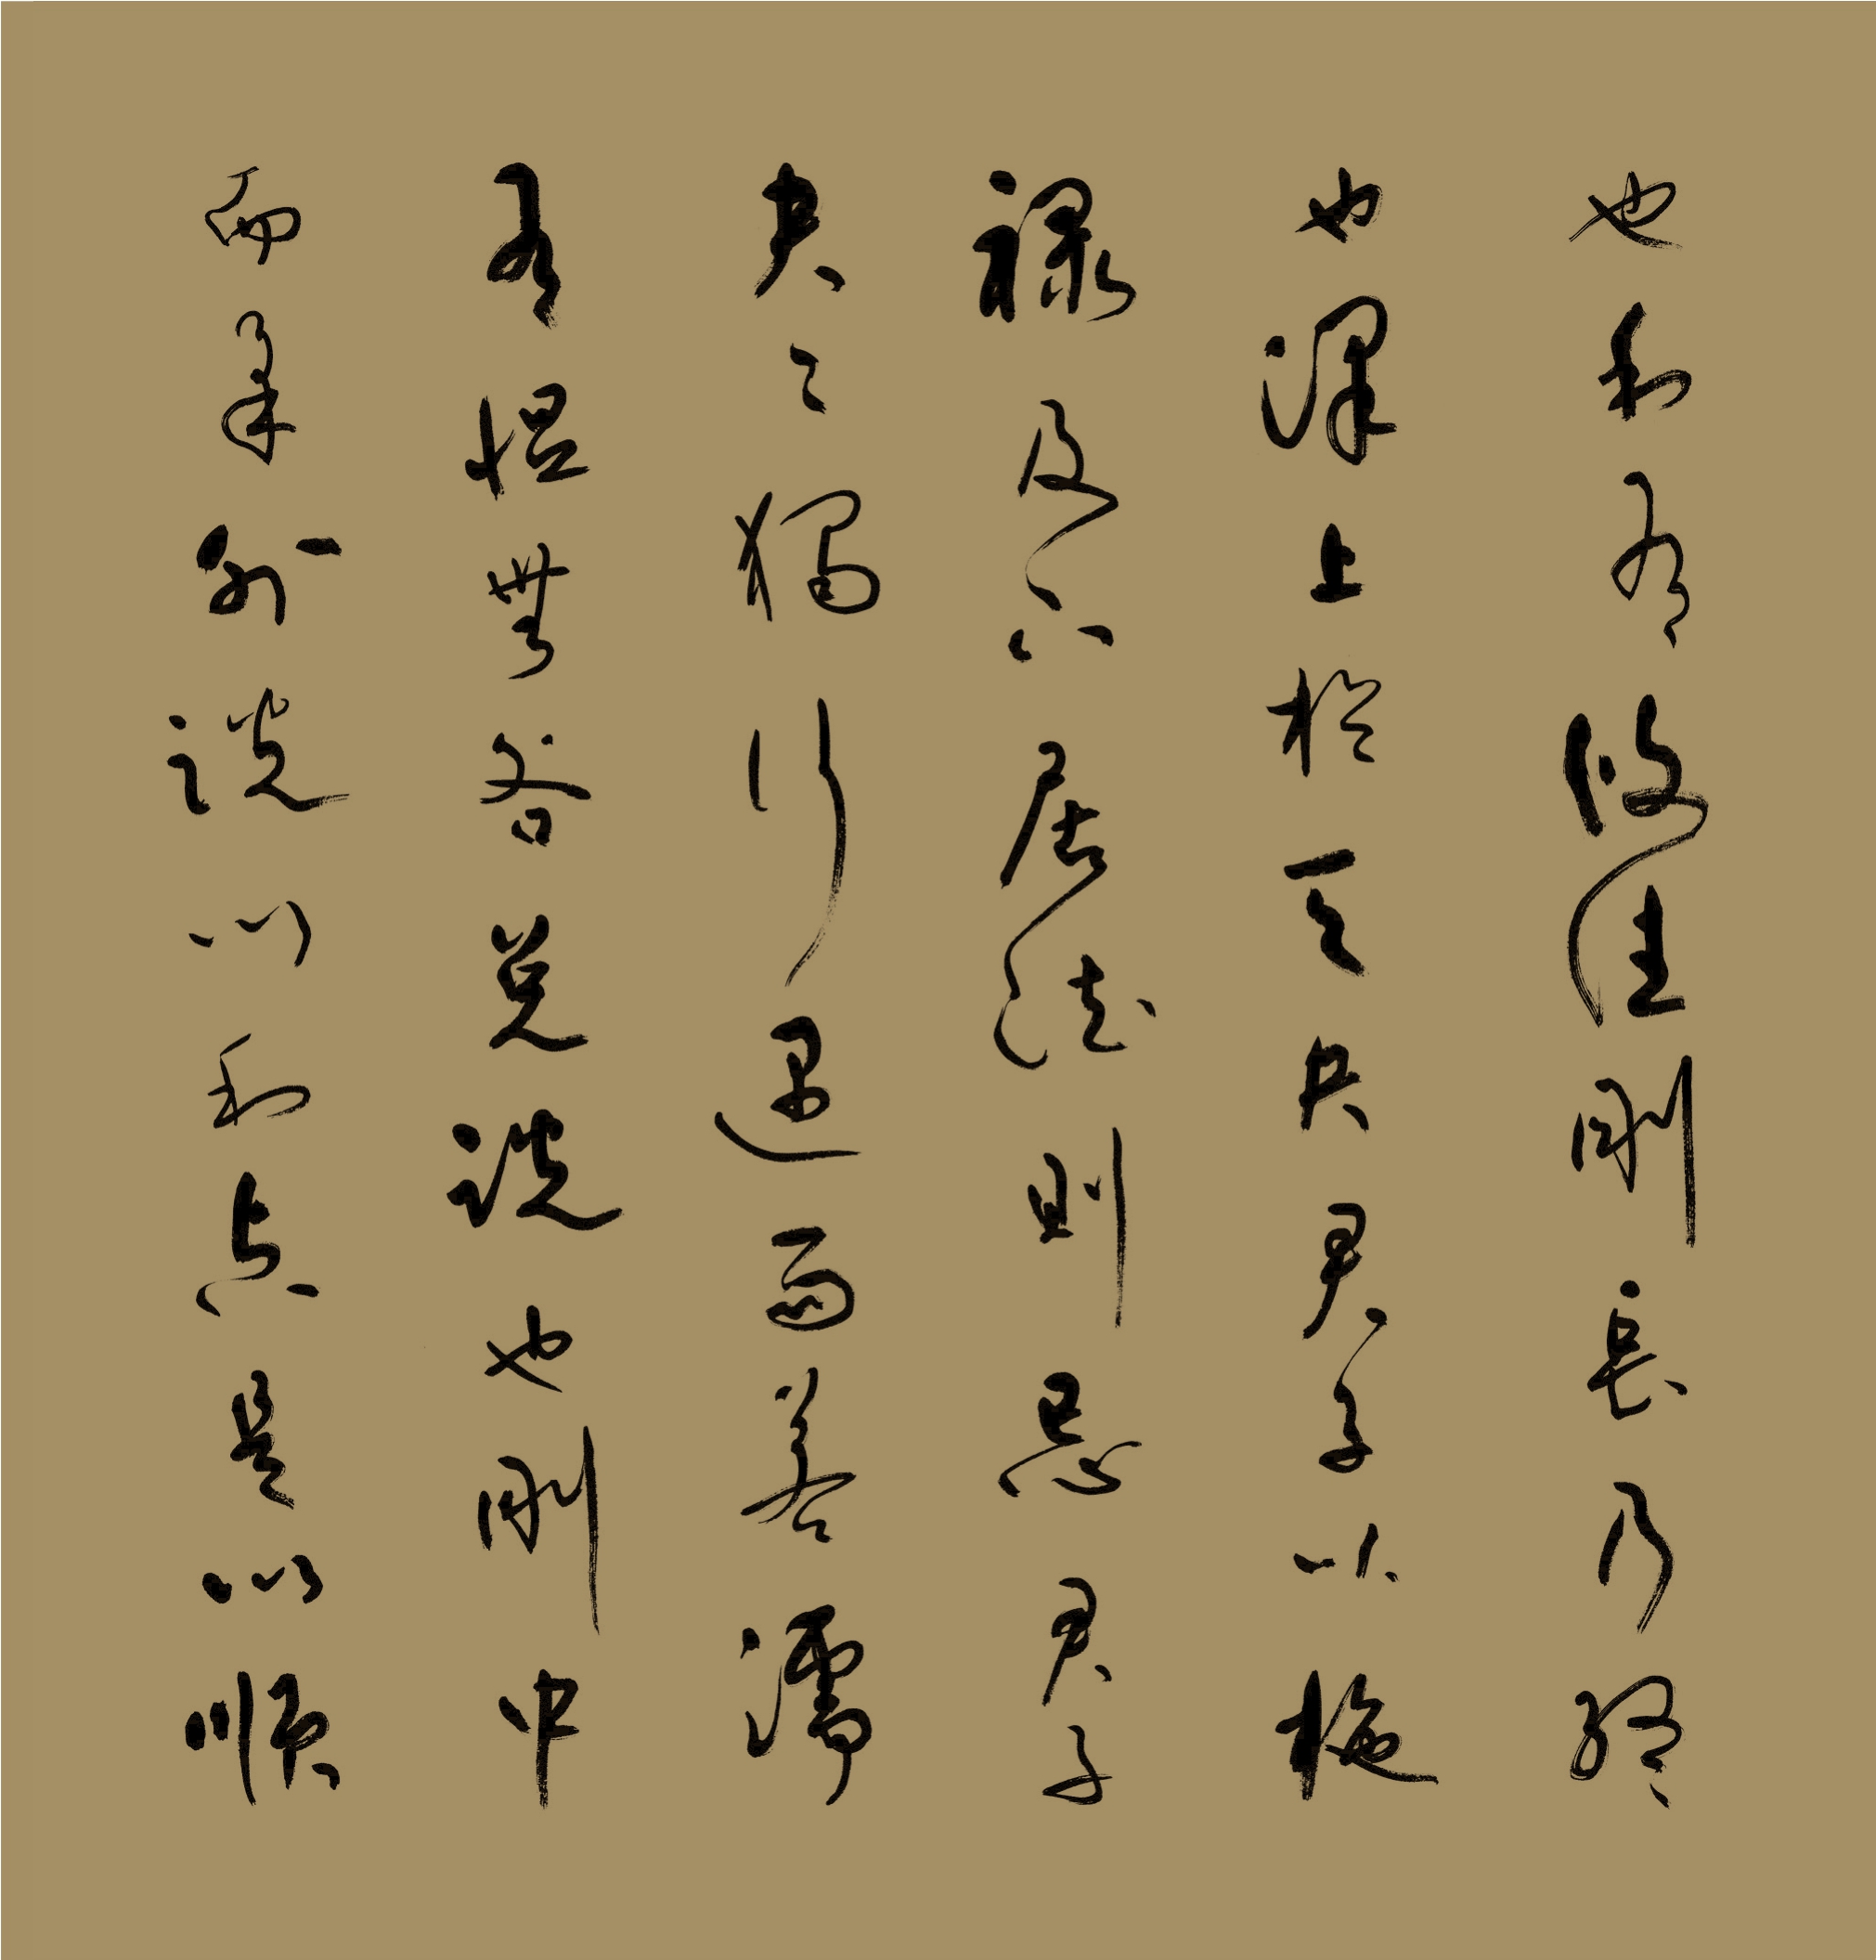 也利有攸往剛長乃終
也澤上於天夬君子以施
祿及下居德則忌君子
夬夬獨行遇雨若濡
有慍無咎兌說也剛中
而柔外說以利貞是以順